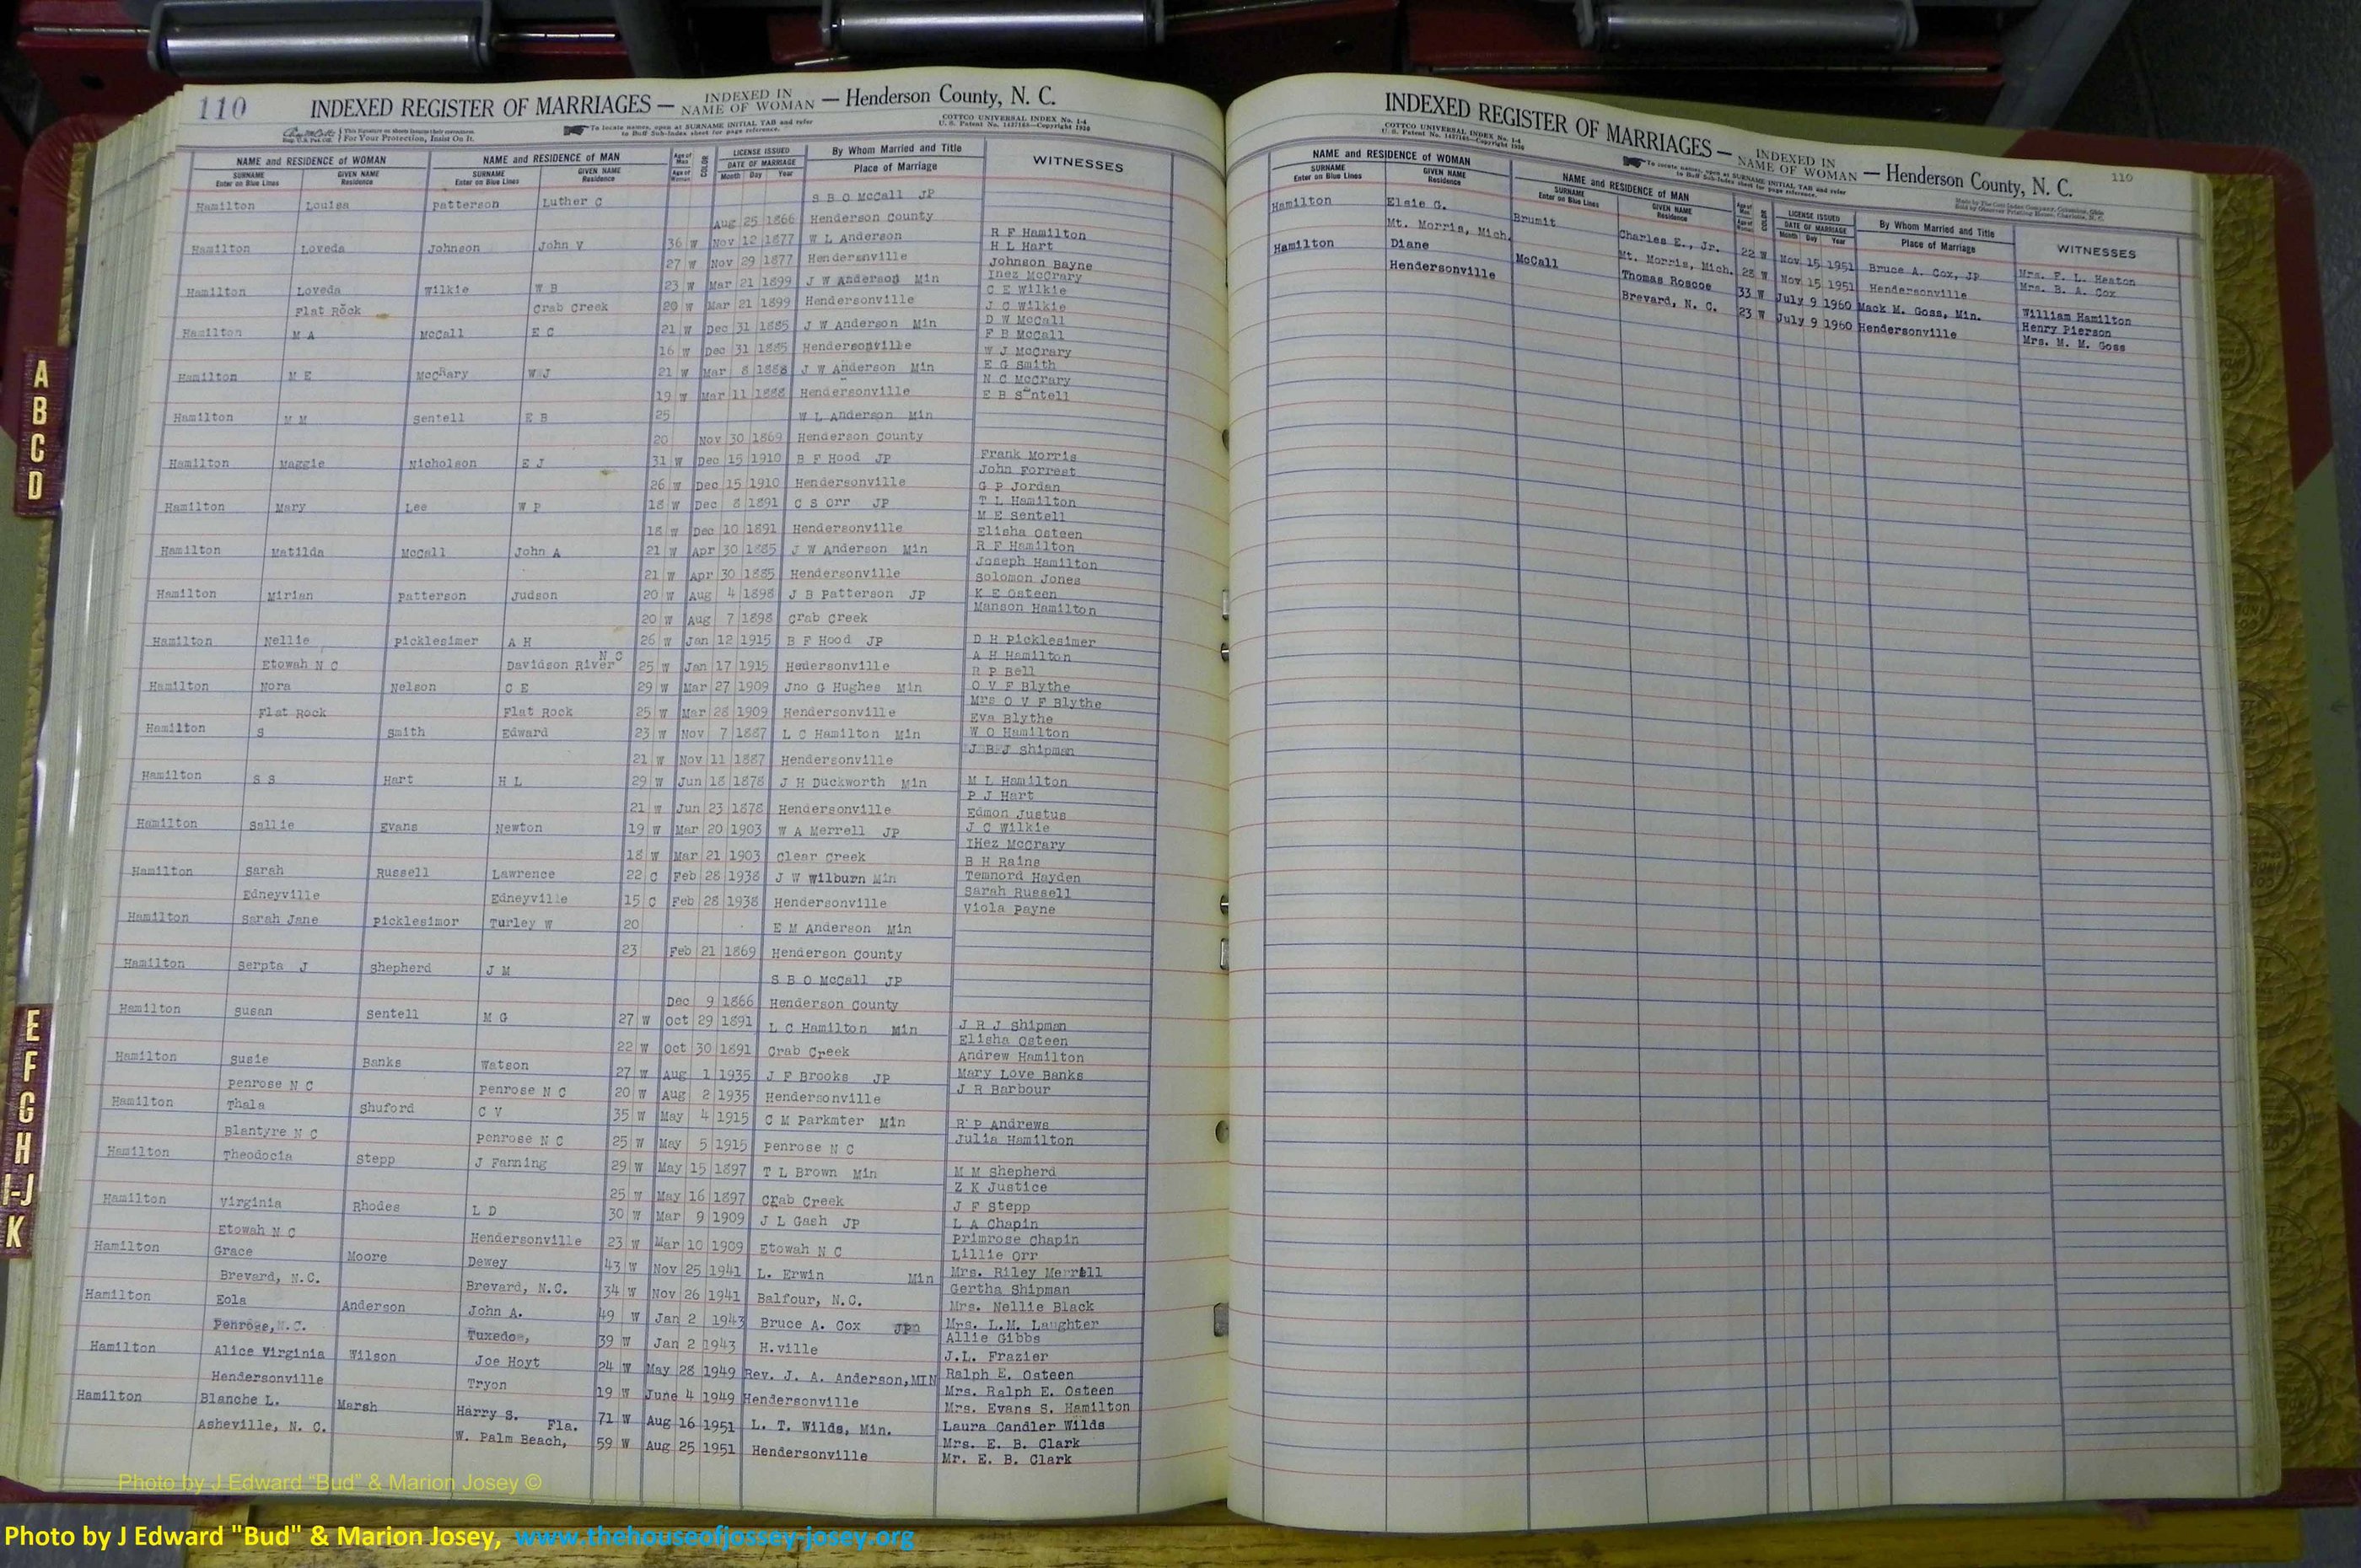 110 INDEXED REGISTER OF MARRIAGES — INDEXED IN NAME OF WOMAN — Henderson County, N. C.
This Signature on sheets insures their correctness. For Your Protection, Insist On It.
To locate names, open at SURNAME INITIAL TAB and refer to Buff Sub-Index sheet for page reference.
COTTCO UNIVERSAL INDEX No. I-4
U. S. Patent No. 1427168—Copyright 1936
NAME and RESIDENCE OF WOMAN NAME and RESIDENCE OF MAN Age of Man COLOR LICENSE ISSUED By Whom Married and Title WITNESSES
SURNAME Enter on Blue Lines GIVEN NAME Residence SURNAME Enter on Blue Lines GIVEN NAME Residence Age of Woman DATE OF MARRIAGE Month Day Year Place of Marriage
Hamilton Louisa Patterson Luther C S B O McCall JP
Aug 25 1866 Henderson County
Hamilton Loveda Johnson John V 36 W Nov 12 1877 W L Anderson R F Hamilton
H L Hart
27 W Nov 29 1877 Hendersnville Johnson Bayne
Hamilton Loveda Wilkie W B 23 W Mar 21 1899 J W Anderson Min Inez McCrary
C E Wilkie
Flat Rock Crab Creek 20 W Mar 21 1899 Hendersonville J C Wilkie
Hamilton M A McCall E C 21 W Dec 31 1885 J W Anderson Min D W McCall
F B McCall
16 W Dec 31 1885 Hendersonville W J McCrary
Hamilton M E McCRary W J 21 W Mar 8 1888 J W Anderson Min E G Smith
N C McCrary
19 W Mar 11 1888 Hendersonville E B Sentell
Hamilton M M Sentell E B 25 W L Anderson Min
20 Nov 30 1869 Henderson County
Hamilton Maggie Nicholson E J 31 W Dec 15 1910 B F Hood JP Frank Morris
John Forrest
26 W Dec 15 1910 Hendersonville G P Jordan
Hamilton Mary Lee W P 18 W Dec 8 1891 C S Orr JP T L Hamilton
M E Sentell
18 W Dec 10 1891 Hendersonville Elisha Osteen
Hamilton Matilda McCall John A 21 W Apr 30 1885 J W Anderson Min R F Hamilton
Joseph Hamilton
21 W Apr 30 1885 Hendersonville Solomon Jones
Hamilton Mirian Patterson Judson 20 W Aug 4 1898 J B Patterson JP K E Osteen
Manson Hamilton
20 W Aug 7 1898 Crab Creek
Hamilton Nellie Picklesimer A H 26 W Jan 12 1915 B F Hood JP D H Picklesimer
N C A H Hamilton
Etowah N C Davidson River 25 W Jan 17 1915 Hedersonville R P Bell
Hamilton Nora Nelson C E 29 W Mar 27 1909 Jno G Hughes Min O V F Blythe
Mrs O V F Blythe
Flat Rock Flat Rock 25 W Mar 28 1909 Hendersonville Eva Blythe
Hamilton S Smith Edward 23 W Nov 7 1887 L C Hamilton Min W O Hamilton
J B J Shipman
21 W Nov 11 1887 Hendersonville
Hamilton S S Hart H L 29 W Jun 18 1878 J H Duckworth Min M L Hamilton
P J Hart
21 W Jun 23 1878 Hendersonville Edmon Justus
Hamilton Sallie Evans Newton 19 W Mar 20 1903 W A Merrell JP J C Wilkie
IHez McCrary
18 W Mar 21 1903 Clear Creek B H Rains
Hamilton Sarah Russell Lawrence 22 C Feb 28 1938 J W Wilburn Min Temnord Hayden
Sarah Russell
Edneyville Edneyville 15 C Feb 28 1938 Hendersonville Viola Payne
Hamilton Sarah Jane Picklesimor Turley W 20 E M Anderson Min
23 Feb 21 1869 Henderson County
Hamilton Serpta J Shepherd J M S B O McCall JP
Dec 9 1866 Henderson County
Hamilton Susan Sentell M G 27 W Oct 29 1891 L C Hamilton Min J R J Shipman
Elisha Osteen
22 W Oct 30 1891 Crab Creek Andrew Hamilton
Hamilton Susie Banks Watson 27 W Aug 1 1935 J F Brooks JP Mary Love Banks
Penrose N C Penrose N C 20 W Aug 2 1935 Hendersonville J R Barbour
Hamilton Thala Shuford C V 35 W May 4 1915 C M Parkmter Min R P Andrews
Blantyre N C Penrose N C 25 W May 5 1915 Penrose N C Julia Hamilton
Hamilton Theodocia Stepp J Fanning 29 W May 15 1897 T L Brown Min M M Shepherd
Z K Justice
25 W May 16 1897 CRab Creek J F Stepp
Hamilton Virginia Rhodes L D 30 W Mar 9 1909 J L Gash JP L A Chapin
Primrose Chapin
Etowah N C Hendersonville 23 W Mar 10 1909 Etowah N C Lillie Orr
Hamilton Grace Moore Dewey 43 W Nov 25 1941 L. Erwin Min Mrs. Riley Merrell
Gertha Shipman
Brevard, N.C. Brevard, N.C. 34 W Nov 26 1941 Balfour, N.C. Mrs. Nellie Black
Hamilton Eola Anderson John A. 49 W Jan 2 1943 Bruce A. Cox Mrs. L.M. Laughter
Allie Gibbs
Penrose, N.C. Tuxedoe, 39 W Jan 2 1943 H.ville J.L. Frazier
Hamilton Alice Virginia Wilson Joe Hoyt 24 W May 28 1949 Rev. J. A. Anderson, MIN Ralph E. Osteen
Mrs. Ralph E. Osteen
Hendersonville Tryon 19 W June 4 1949 Hendersonville Mrs. Evans S. Hamilton
Hamilton Blanche L. Marsh Harry S. 71 W Aug 16 1951 L. T. Wilds, Min. Laura Candler Wilds
Fla. Mrs. E. B. Clark
Asheville, N. C. W. Palm Beach, 59 W Aug 25 1951 Hendersonville Mr. E. B. Clark
INDEXED REGISTER OF MARRIAGES — INDEXED IN NAME OF WOMAN — Henderson County, N. C. 110
COTTCO UNIVERSAL INDEX No. I-4
U. S. Patent No. 1427168—Copyright 1936
To locate names, open at SURNAME INITIAL TAB and refer to Buff Sub-Index sheet for page reference.
NAME and RESIDENCE OF WOMAN NAME and RESIDENCE OF MAN Age of Man LICENSE ISSUED By Whom Married and Title WITNESSES
SURNAME Enter on Blue Lines GIVEN NAME Residence SURNAME Enter on Blue Lines GIVEN NAME Residence Age of Woman DATE OF MARRIAGE Month Day Year Place of Marriage
Hamilton Elsie G. Brumit Charles E., Jr. 22 W Nov 15 1951 Bruce A. Cox, JP Mrs. F. L. Heaton
Mt. Morris, Mich. Mt. Morris, Mich. 28 W Nov 15 1951 Hendersonville Mrs. B. A. Cox
Hamilton Diane McCall Thomas Roscoe 33 W July 9 1960 Mack M. Goss, Min. William Hamilton
Henry Pierson
Hendersonville Brevard, N. C. 23 W July 9 1960 Hendersonville Mrs. M. M. Goss
A
B
C
D
E
F
G
H
I-J
K
Photo by J Edward “Bud” & Marion Josey ©
Photo by J Edward "Bud" & Marion Josey, www.thehouseofjossey-josey.org